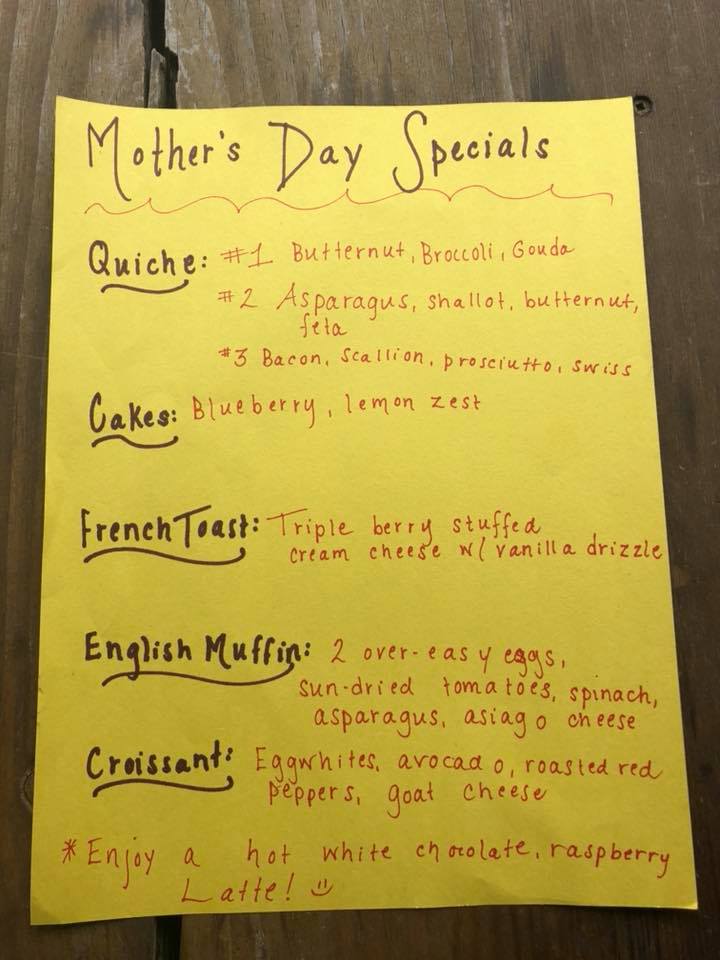 Mother's Day Specials
Quiche: #1 Butternut, Broccoli, Gouda
#2 Asparagus, shallot, butternut,
feta
#3 Bacon, scallion, prosciutto, swiss
Cakes: Blueberry, lemon zest
French Toast: Triple berry stuffed
cream cheese w/ vanilla drizzle
English Muffin: 2 over-easy eggs,
sun-dried tomatoes, spinach,
asparagus, asiago cheese
Croissant: Eggwhites, avocado, roasted red
peppers, goat cheese
*Enjoy a hot white chocolate, raspberry
Latte! :)